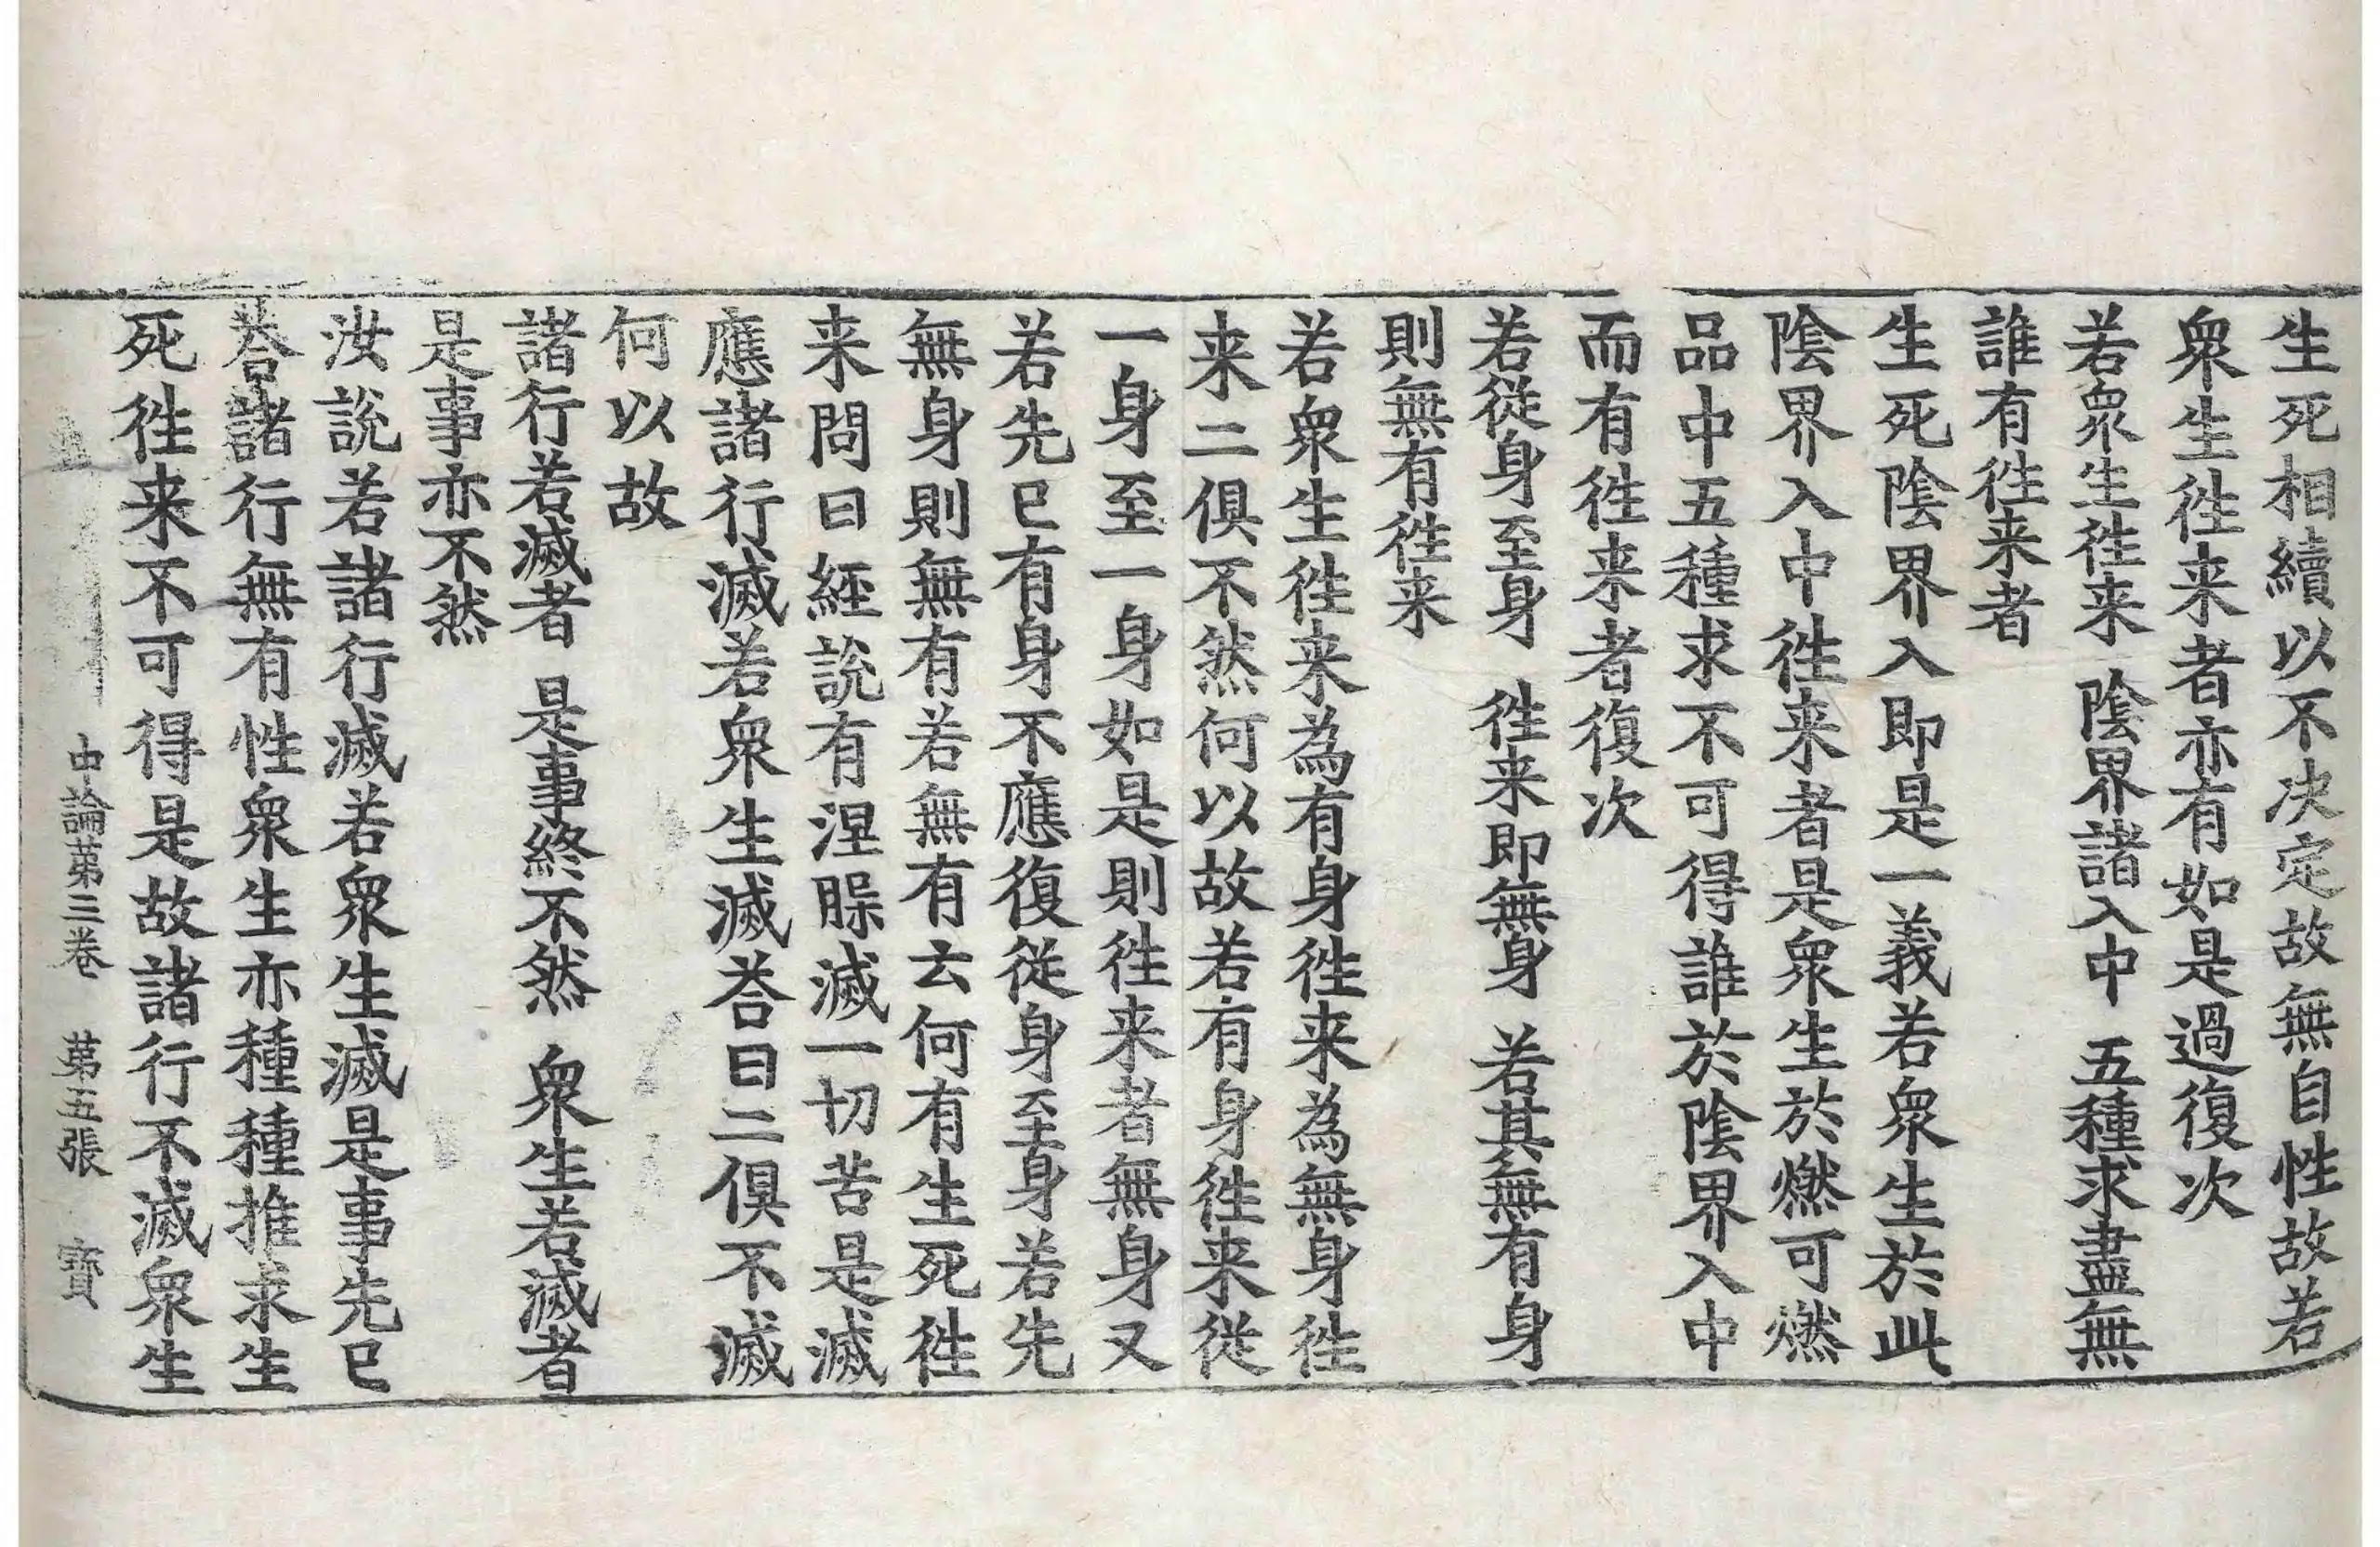 生死相續以不決定故無自性故若
衆生徃来者亦有如是過復次
若衆生徃来　陰界諸入中　五種求盡無
誰有徃来者
生死陰界入即是一義若衆生於此
陰界入中徃来者是衆生於燃可燃
品中五種求不可得誰於陰界入中
而有徃来者復次
若從身至身　徃来即無身　若其無有身
則無有徃来
若衆生徃来為有身徃来為無身徃
来二俱不然何以故若有身徃来從
一身至一身如是則徃来者無身又
若先已有身不應復從身至身若先
無身則無有若無有云何有生死徃
来問曰經説有涅槃滅一切苦是滅
應諸行滅若衆生滅荅曰二俱不滅
何以故
諸行若滅者　是事終不然　衆生若滅者
是事亦不然
汝説若諸行滅若衆生滅是事先已
荅諸行無有性衆生亦種種推求生
死徃来不可得是故諸行不滅衆生
中論第三卷　第五張　寶